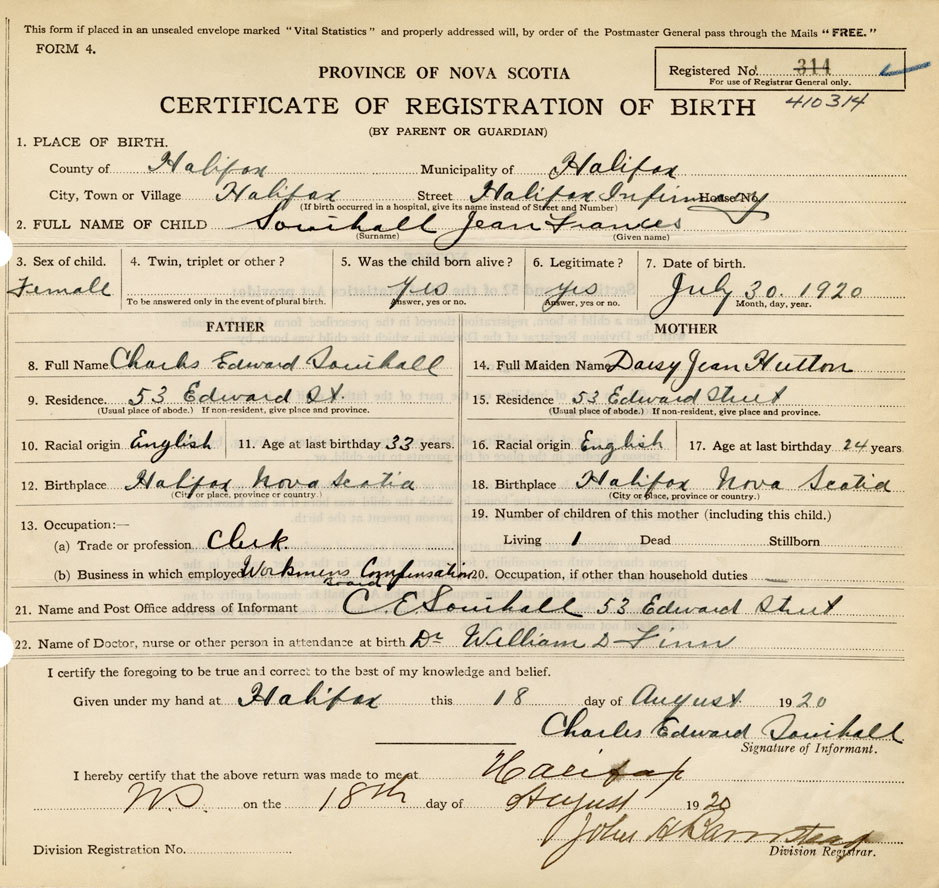 This form if placed in an unsealed envelope marked "Vital Statistics" and properly addressed will, by order of the Postmaster General pass through the Mails "FREE."
FORM 4.
PROVINCE OF NOVA SCOTIA
Registered No. 314
For use of Registrar General only.
CERTIFICATE OF REGISTRATION OF BIRTH 410314
(BY PARENT OR GUARDIAN)
1. PLACE OF BIRTH.
County of Halifax Municipality of Halifax
City, Town or Village Halifax Street Halifax Infirmary House No.
(If birth occurred in a hospital, give its name instead of Street and Number)
2. FULL NAME OF CHILD Jean Frances
(Surname) (Given name)
3. Sex of child. 4. Twin, triplet or other? 5. Was the child born alive? 6. Legitimate? 7. Date of birth.
Female Yes Yes July 30. 1920
To be answered only in the event of plural birth. Answer, yes or no. Answer, yes or no. Month, day, year.
FATHER MOTHER
8. Full Name Charles Edward 14. Full Maiden Name Daisy Jean Hutton
9. Residence. 53 Edward St. 15. Residence 53 Edward Street
(Usual place of abode.) If non-resident, give place and province. (Usual place of abode.) If non-resident, give place and province.
10. Racial origin English 11. Age at last birthday 33 years. 16. Racial origin English 17. Age at last birthday 24 years
12. Birthplace Halifax Nova Scotia 18. Birthplace Halifax Nova Scotia
(City or place, province or country.) (City or place, province or country.)
13. Occupation:— 19. Number of children of this mother (including this child.)
(a) Trade or profession Clerk. Living 1 Dead Stillborn
(b) Business in which employed Workmens Compensation Board 20. Occupation, if other than household duties —
21. Name and Post Office address of Informant C E 53 Edward Street
22. Name of Doctor, nurse or other person in attendance at birth Dr William D Finn
I certify the foregoing to be true and correct to the best of my knowledge and belief.
Given under my hand at Halifax this 18 day of August 1920
Charles Edward
Signature of Informant.
I hereby certify that the above return was made to me at Halifax
N.S. on the 18th day of August 1920
John H
Division Registration No. Division Registrar.